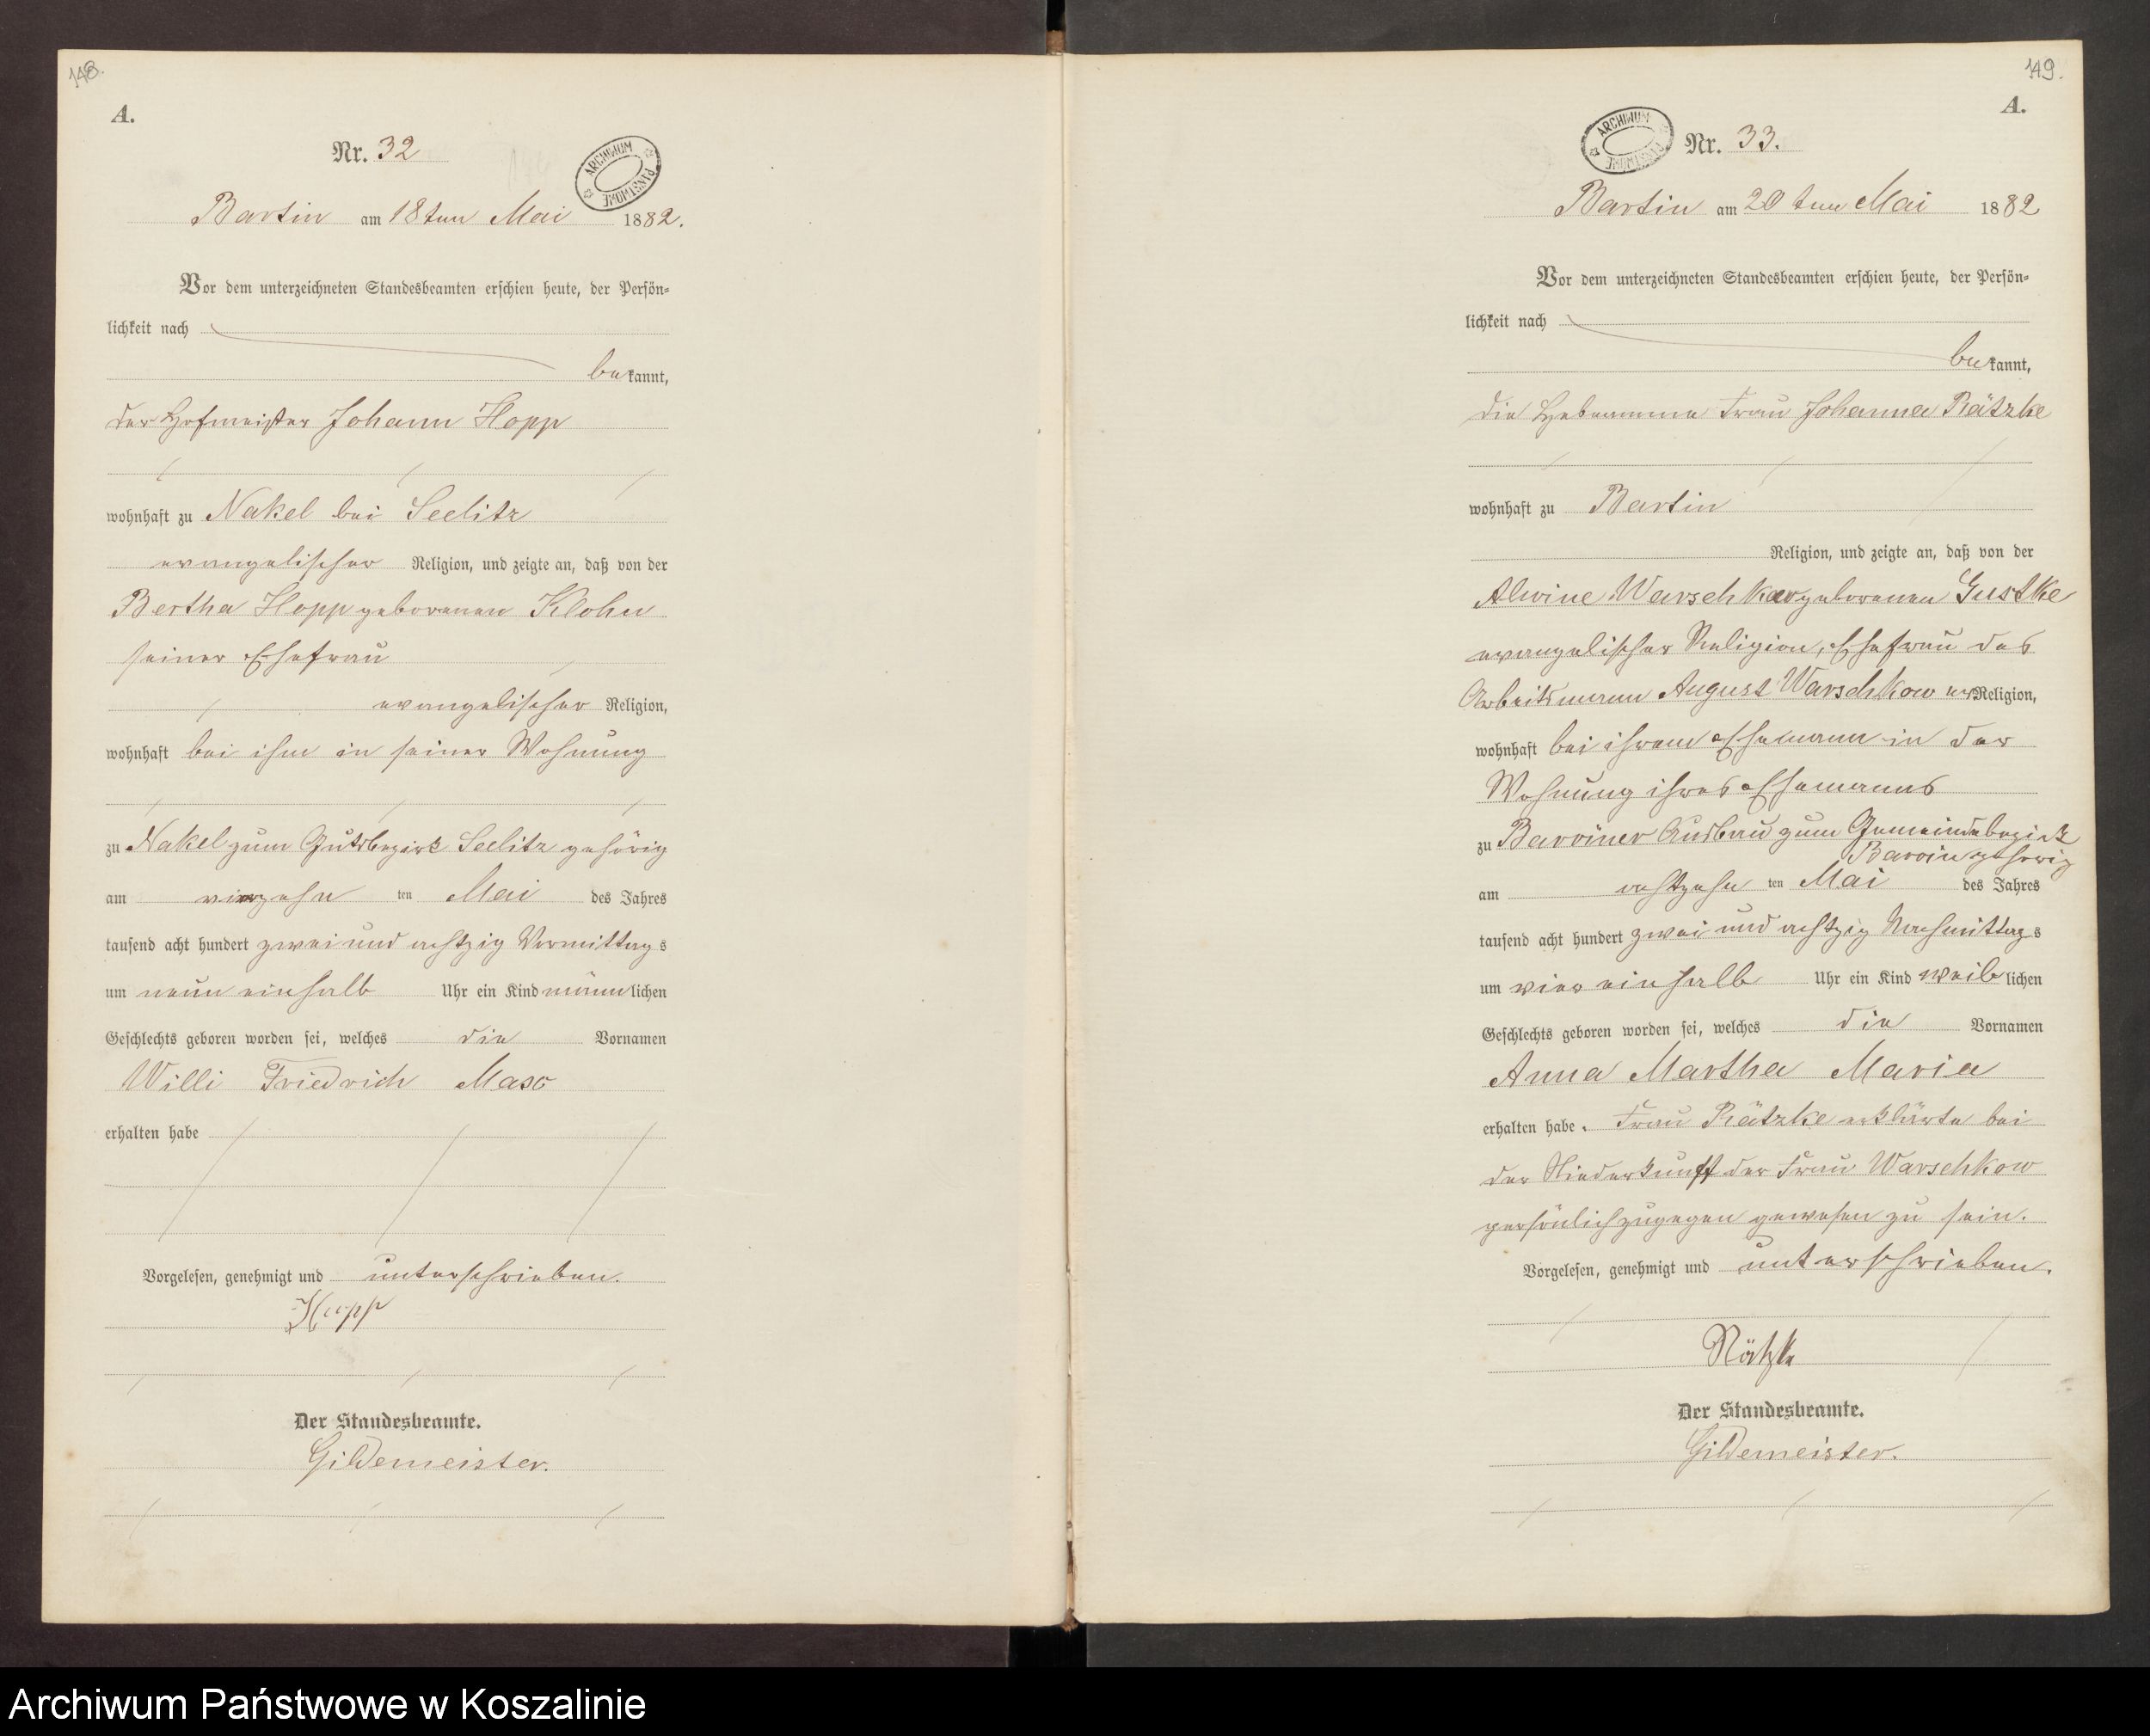 148.
A.
Nr. 32
ARCHIWUM PAŃSTWOWE
Bartin am 18ten Mai 1882.
Vor dem unterzeichneten Standesbeamten erschien heute, der Persön-
lichkeit nach
bekannt,
der Hofmeister Johann Hopp
wohnhaft zu Nakel bei Seelitz
evangelischer Religion, und zeigte an, daß von der
Bertha Hopp geborenen Klohn
seiner Ehefrau
evangelischer Religion,
wohnhaft bei ihm in seiner Wohnung
zu Nakel zum Gutsbezirk Seelitz gehörig
am vierzehn ten Mai des Jahres
tausend acht hundert zwei und achtzig Vormittags
um neun einhalb Uhr ein Kind männlichen
Geschlechts geboren worden sei, welches die Vornamen
Willi Friedrich Max
erhalten habe
Vorgelesen, genehmigt und unterschrieben.
Hopp
Der Standesbeamte.
Gildemeister.
149.
A.
ARCHIWUM PAŃSTWOWE
Nr. 33.
Bartin am 20ten Mai 1882
Vor dem unterzeichneten Standesbeamten erschien heute, der Persön-
lichkeit nach
bekannt,
die Hebeamme Frau Johanna Rätzke
wohnhaft zu Bartin
Religion, und zeigte an, daß von der
Alwine Warschkow geborenen Gustke
evangelischer Religion, Ehefrau des
Arbeitsmann August Warschkow ev. Religion,
wohnhaft bei ihrem Ehemann in der
Wohnung ihres Ehemanns
zu Barviner Ausbau zum Gemeindebezirk
Barvin gehörig
am achtzehn ten Mai des Jahres
tausend acht hundert zwei und achtzig Nachmittags
um vier einhalb Uhr ein Kind weiblichen
Geschlechts geboren worden sei, welches die Vornamen
Anna Martha Maria
erhalten habe. Frau Rätzke erklärte bei
der Niederkunft der Frau Warschkow
persönlich zugegen gewesen zu sein.
Vorgelesen, genehmigt und unterschrieben.
Rätzke
Der Standesbeamte.
Gildemeister.
Archiwum Państwowe w Koszalinie